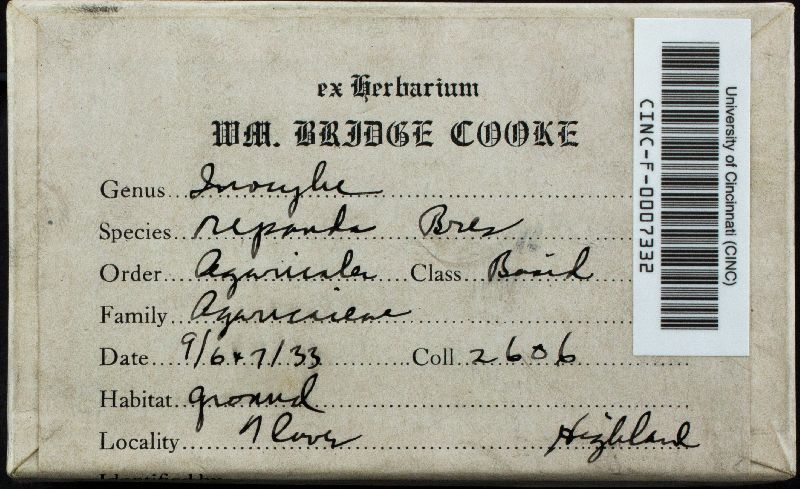 ex Herbarium
WM. BRIDGE COOKE
Genus Inocybe
Species repanda Bres
Order Agaricales Class Basid
Family Agaricaceae
Date 9/6+7/33 Coll 2606
Habitat ground
Locality Highland
Identified by
University of Cincinnati (CINC)
CINC-F-0007332